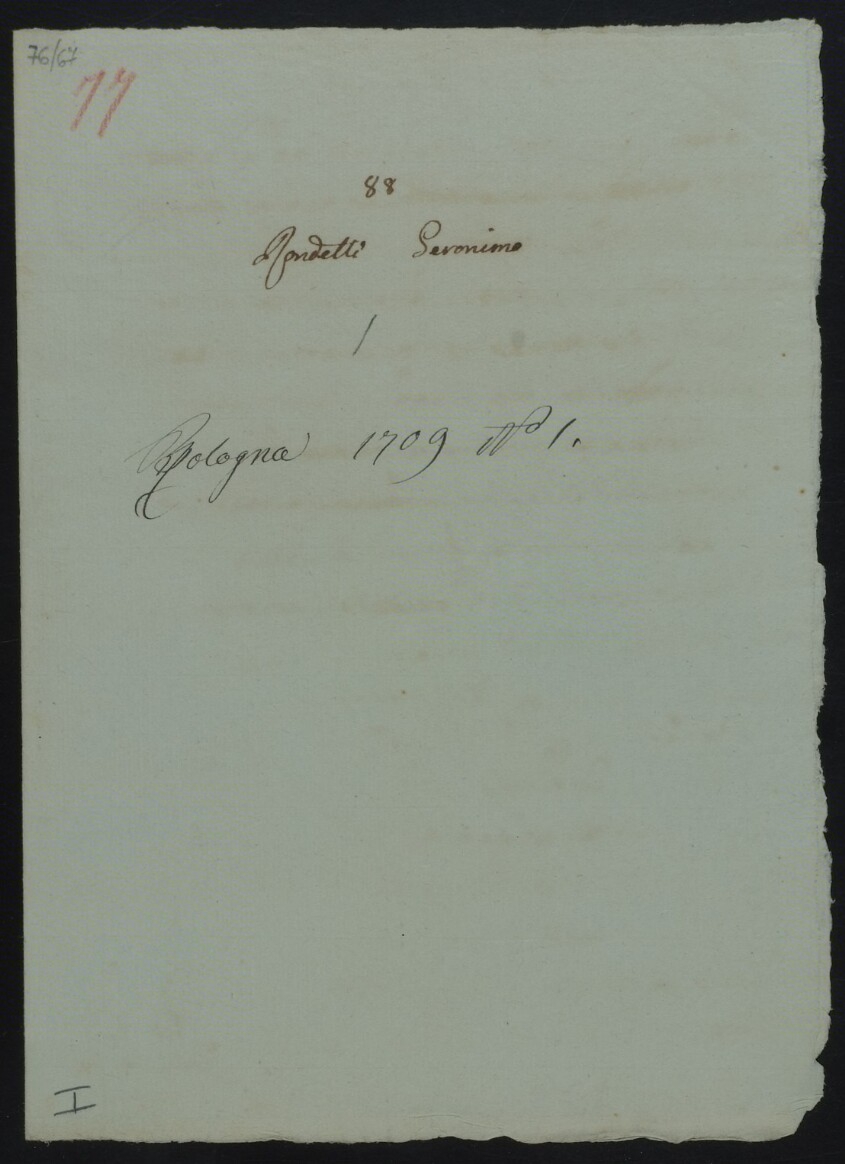 76/67
77
88
Rondelli Geronimo
1
Bologna 1709 No 1.
I